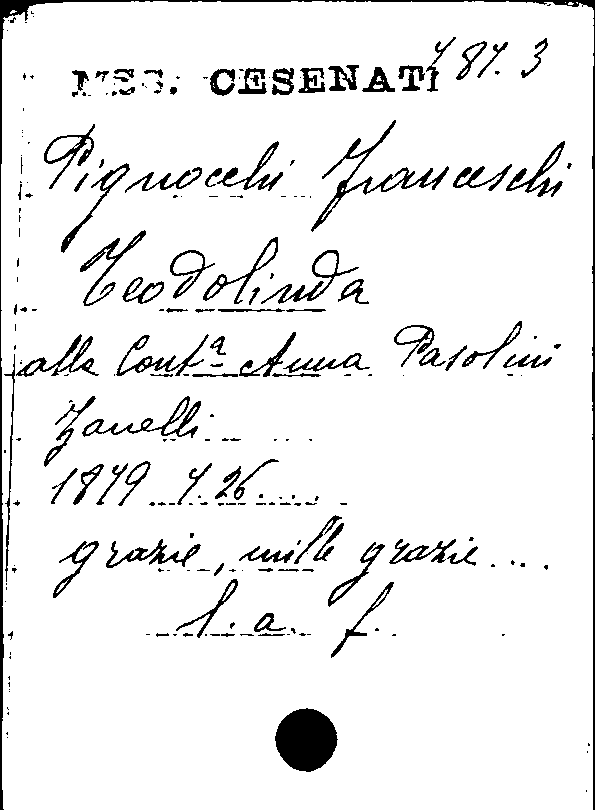 MSS. CESENATI 487.3
Pignocchi Franceschi
Teodolinda
alla Cont.ª Anna Pasolini
Zanelli
1879 7. 26....
grazie, mille grazie....
l. a. f.